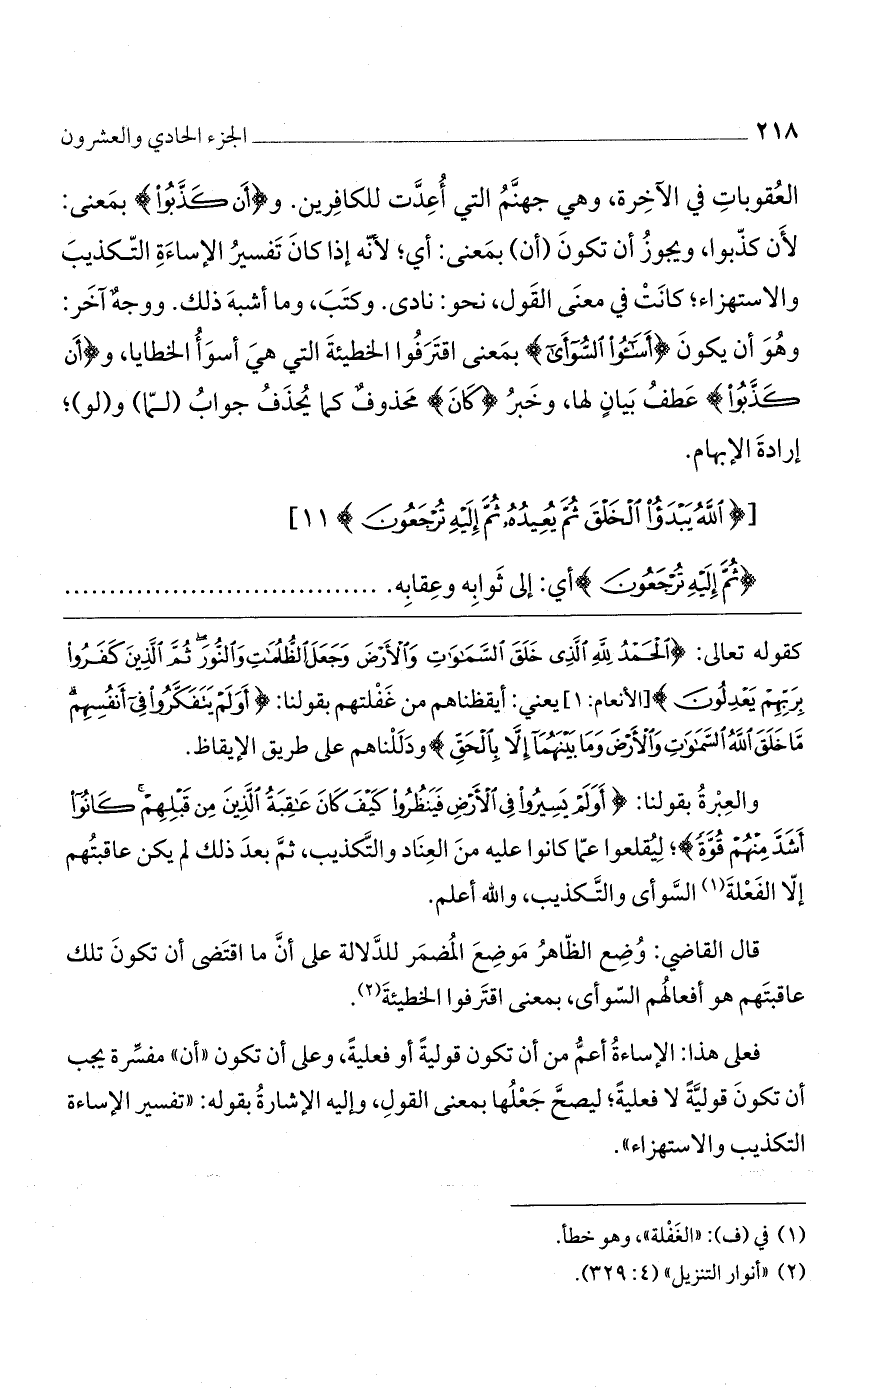 ٢١٨ ــــــــــــــــــــــــــــ الجزء الحادي والعشرون
العُقوباتِ في الآخِرة، وهي جهنَّمُ التي أُعِدَّت للكافِرين. و﴿أَن كَذَّبُوا۟﴾ بمَعنى:
لأَن كذّبوا، ويجوزُ أن تكونَ (أن) بمَعنى: أي؛ لأنّه إذا كانَ تَفسيرُ الإساءَةِ التّكذيبَ
والاستهزاء؛ كانَتْ في معنَى القَول، نحو: نادى. وكتَبَ، وما أشبهَ ذلك. ووجهٌ آخَر:
وهُوَ أن يكونَ ﴿أَسَـٰٓـُٔوا۟ ٱلسُّوٓأَىٰٓ﴾ بمَعنى اقتَرَفُوا الخطيئةَ التي هيَ أسوَأُ الخطايا، و﴿أَن
كَذَّبُوا۟﴾ عَطفُ بَيانٍ لها، وخَبرُ ﴿كَانَ﴾ محَذوفٌ كما يُحذَفُ جوابُ (لـمّا) و(لو)؛
إرادةَ الإبهام.
[﴿ٱللَّهُ يَبْدَؤُا۟ ٱلْخَلْقَ ثُمَّ يُعِيدُهُۥ ثُمَّ إِلَيْهِ تُرْجَعُونَ﴾ ١١]
﴿ثُمَّ إِلَيْهِ تُرْجَعُونَ﴾ أي: إلى ثَوابِه وعِقابِه. ...................................
كقوله تعالى: ﴿ٱلْحَمْدُ لِلَّهِ ٱلَّذِى خَلَقَ ٱلسَّمَـٰوَٰتِ وَٱلْأَرْضَ وَجَعَلَ ٱلظُّلُمَـٰتِ وَٱلنُّورَ ۖ ثُمَّ ٱلَّذِينَ كَفَرُوا۟
بِرَبِّهِمْ يَعْدِلُونَ﴾ [الأنعام: ١] يعني: أيقظناهم من غَفْلتهم بقولنا: ﴿أَوَلَمْ يَتَفَكَّرُوا۟ فِىٓ أَنفُسِهِم ۗ
مَّا خَلَقَ ٱللَّهُ ٱلسَّمَـٰوَٰتِ وَٱلْأَرْضَ وَمَا بَيْنَهُمَآ إِلَّا بِٱلْحَقِّ﴾ ودَلَلْناهم على طريق الإيقاظ.
والعِبْرةُ بقولنا: ﴿أَوَلَمْ يَسِيرُوا۟ فِى ٱلْأَرْضِ فَيَنظُرُوا۟ كَيْفَ كَانَ عَـٰقِبَةُ ٱلَّذِينَ مِن قَبْلِهِمْ ۚ كَانُوٓا۟
أَشَدَّ مِنْهُمْ قُوَّةً﴾؛ ليُقلعوا عمّا كانوا عليه منَ العِنَاد والتَّكذيب، ثمَّ بعدَ ذلك لم يكن عاقبتُهم
إلّا الفَعْلةَ(١) السَّوأى والتَّكذيب، والله أعلم.
قال القاضي: وُضِع الظّاهرُ مَوضِعَ المُضمَر للدَّلالة على أنَّ ما اقتَضى أن تكونَ تلك
عاقبتَهم هو أفعالُهم السّوأى، بمعنى اقتَرفوا الخطيئةَ(٢).
فعلى هذا: الإساءةُ أعمُّ من أن تكون قوليةً أو فعليةً، وعلى أن تكون «أن» مفسِّرة يجب
أن تكونَ قوليَّةً لا فعليةً؛ ليصحَّ جَعْلُها بمعنى القولِ، وإليه الإشارةُ بقوله: «تفسير الإساءة
التكذيب والاستهزاء».
(١) في (ف): «الغَفْلة»، وهو خطأ.
(٢) «أنوار التنزيل» (٤: ٣٢٩).